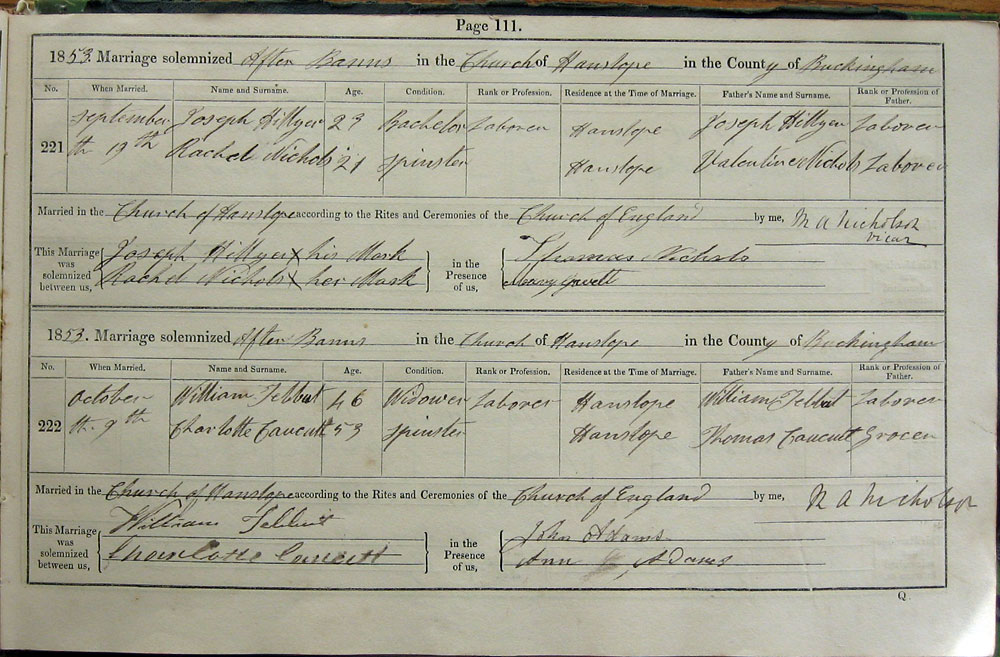 Page 111.
1853. Marriage solemnized After Banns in the Church of Hanslope in the County of Buckingham
No. When Married. Name and Surname. Age. Condition. Rank or Profession. Residence at the Time of Marriage. Father's Name and Surname. Rank or Profession of Father.
September Joseph Hillyer 23 Bachelor Laborer Hanslope Joseph Hillyer Laborer
221 th 19th Rachel Nichols 21 Spinster Hanslope Valentine Nichols Laborer
Married in the Church of Hanslope according to the Rites and Ceremonies of the Church of England by me, M A Nicholson
Vicar
This Marriage was solemnized between us, Joseph Hillyer X his Mark in the Presence of us, Thomas Nichols
Rachel Nichols X her Mark Mary
1853. Marriage solemnized After Banns in the Church of Hanslope in the County of Buckingham
No. When Married. Name and Surname. Age. Condition. Rank or Profession. Residence at the Time of Marriage. Father's Name and Surname. Rank or Profession of Father.
October William Tebbut 46 Widower Laborer Hanslope William Tebbut Laborer
222 th. 9th Charlotte Caucutt 53 Spinster Hanslope Thomas Caucutt Grocer
Married in the Church of Hanslope according to the Rites and Ceremonies of the Church of England by me, M A Nicholson
This Marriage was solemnized between us, William Tebbut in the Presence of us, John Adams
Charlotte Caucutt Ann Adams
Q